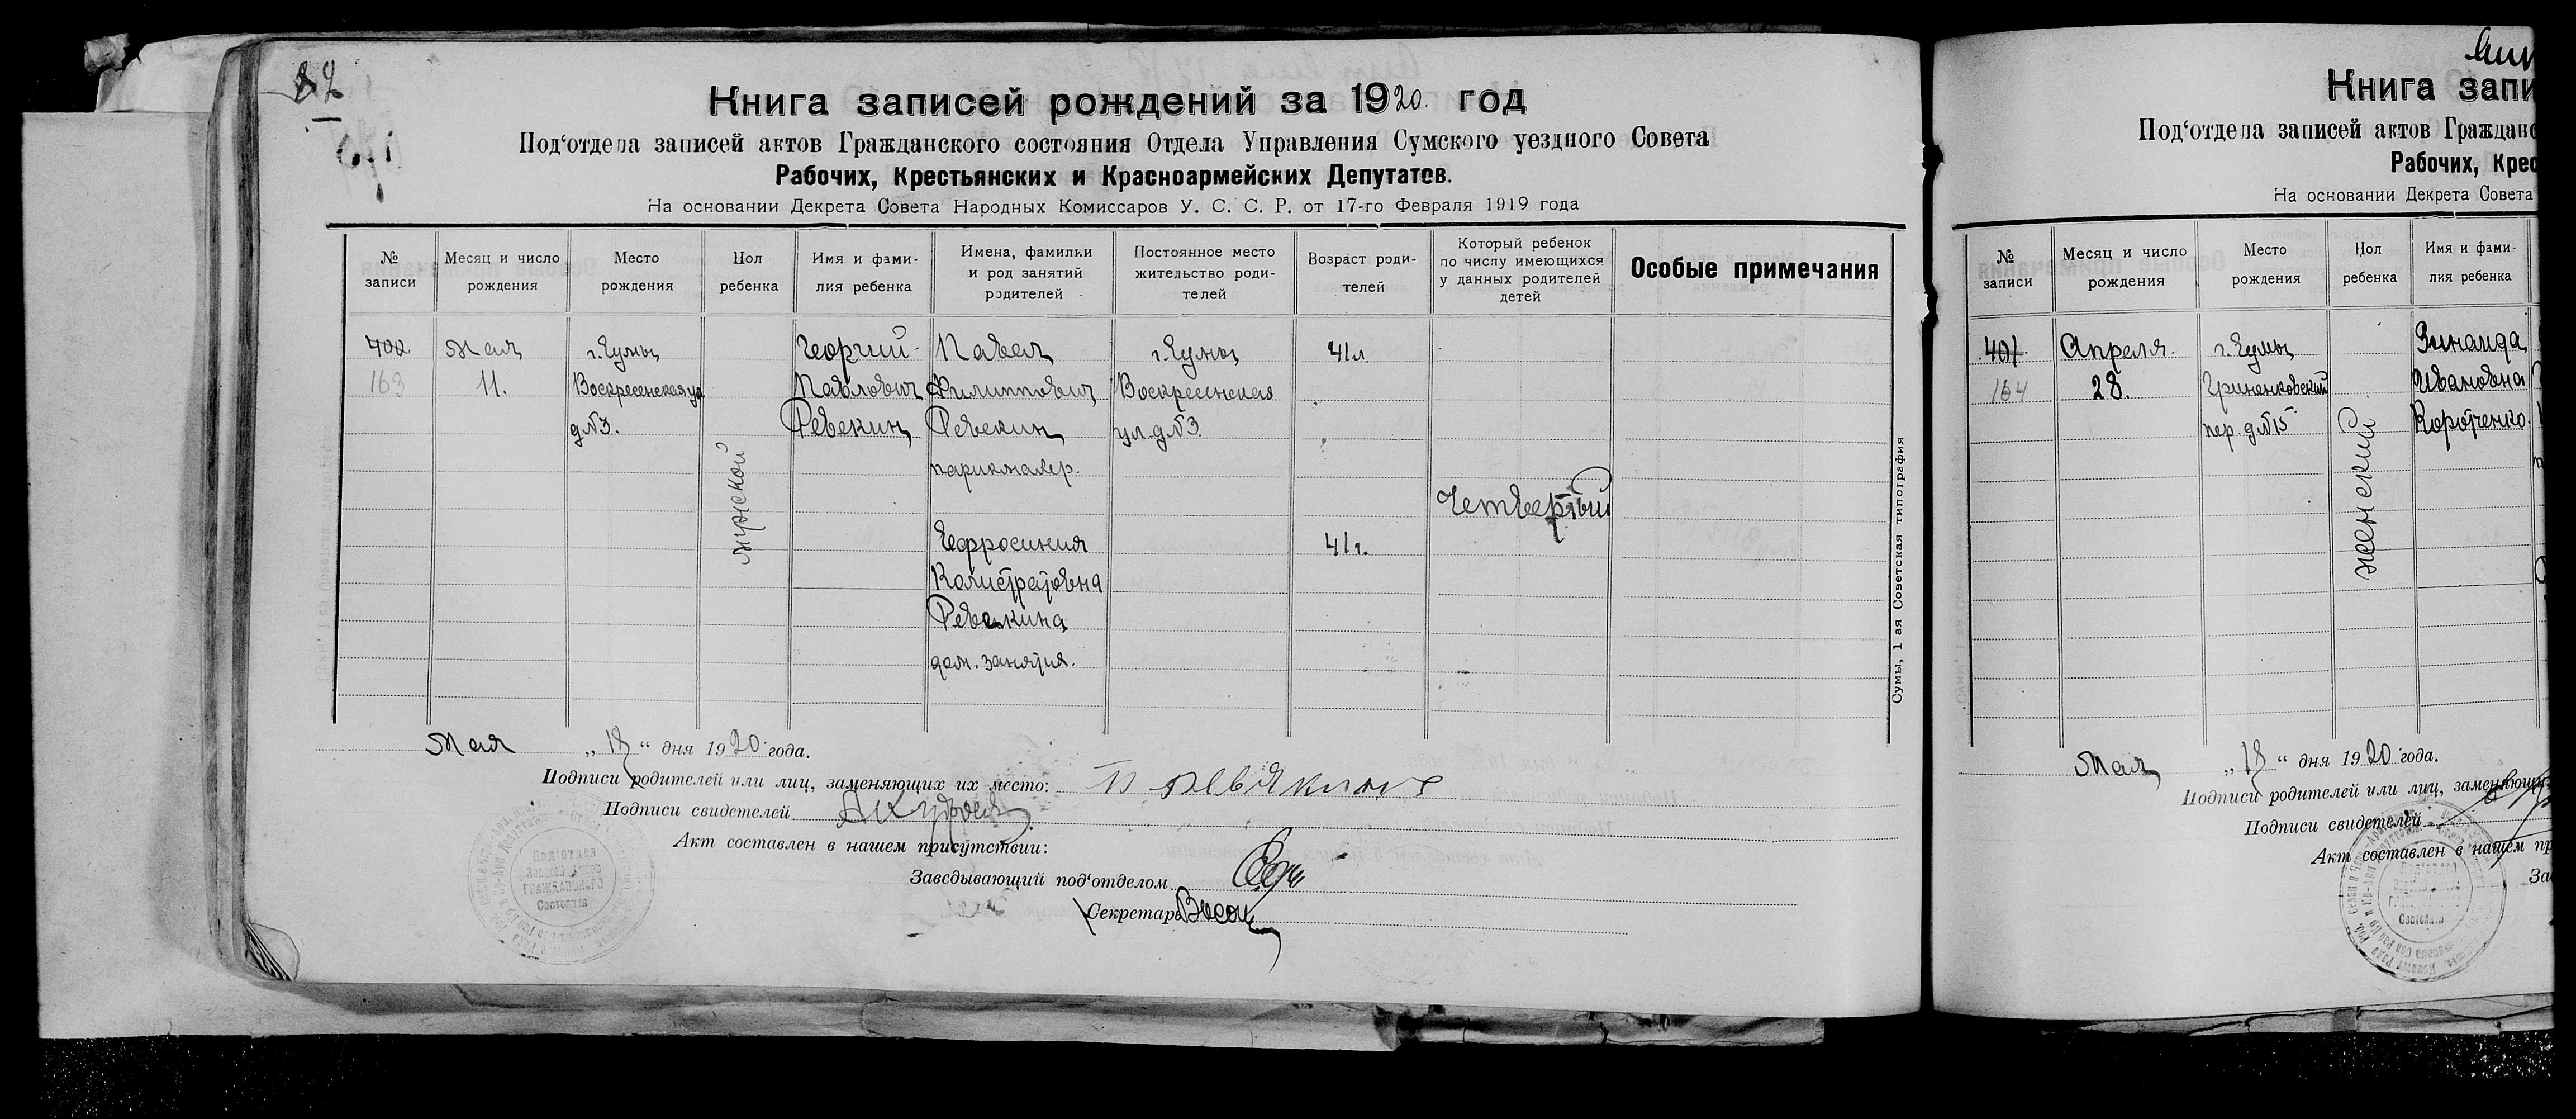 82
Книга записей рождений за 1920. год
Под‘отдела записей актов Гражданского состояния Отдела Управления Сумского уездного Совета
Рабочих, Крестьянских и Красноармейских Депутатов.
На основании Декрета Совета Народных Комиссаров У. С. С. Р. от 17-го Февраля 1919 года
№ записи
Месяц и число рождения
Место рождения
Пол ребенка
Имя и фами-
лия ребенка
Имена, фамилии
и род занятий
родителей
Постоянное место
жительство роди-
телей
Возраст роди-
телей
Который ребенок
по числу имеющихся
у данных родителей
детей
Особые примечания
402.
163
Мая
11.
г. Сумы
Воскресенская ул
д№3.
мужской
Георгий
Павлович
Ревекин
Павел
Филиппович
Ревекин
парикмахер.
Евфросиния
Калистратовна
Ревекина
дом. занятия.
г. Сумы
Воскресенская
ул. д№3
41л
41г.
Четвертый
Сумы, 1 ая Советская типография
Мая „18“ дня 1920 года.
Подписи родителей или лиц, заменяющих их место:
Подписи свидетелей
Акт составлен в нашем присутствии:
Заведывающий под‘отделом
Секретарь
Под‘отдел
Записей Актов
ГРАЖДАНСКОГО
Состояния
Книга запи
Под‘отдела записей актов Гражданс
Рабочих, Крес
На основании Декрета Совета
№ записи
Месяц и число рождения
Место рождения
Пол ребенка
Имя и фами-
лия ребенка
401
164
Апреля
28.
г. Сумы
Гриненковский
пер. д№15
женский
Зинаида
Ивановна
Коротченко.
Мая „18“ дня 1920 года.
Подписи родителей или лиц, заменяющи
Подписи свидетелей
Акт составлен в нашем пр
За
Состояния